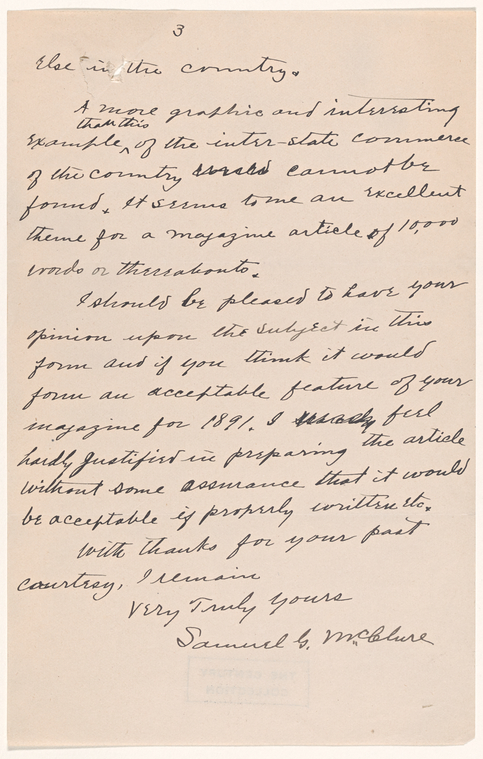 3
Else in the country.
A more graphic and interesting
than this
example ^ of the inter-state commerce
of the country cannot be
found. It seems to me an excellent
theme for a magazine article of 10,000
words or thereabouts.
I should be pleased to have your
opinion upon the subject in this
form and if you think it would
form an acceptable feature of your
magazine for 1891. I feel
hardly justified in preparing the article
without some assurance that it would
be acceptable if properly written etc.
With thanks for your past
courtesy, I remain
Very Truly Yours
Samuel G. McClure